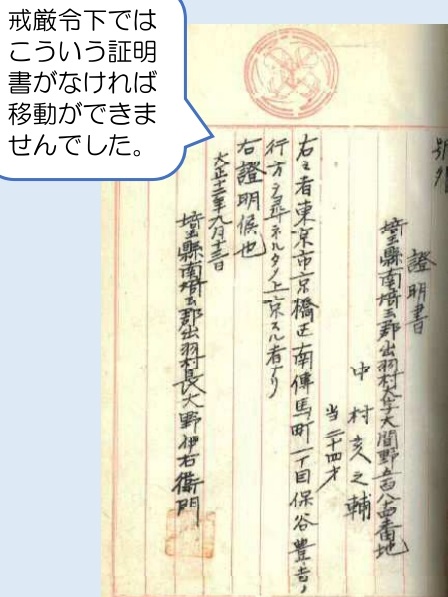 戒厳令下では
こういう証明
書がなければ
移動ができま
せんでした。
号外
證明書
埼玉縣南埼玉郡出羽村大字大間野五百八十四番地
中村亥之輔
当二十四才
右之者東京市京橋区南傳馬町一丁目保谷豊吉ノ
行方ヲ尋ネルタメ上京スル者ナリ
右證明候也
大正十二年九月十三日
埼玉縣南埼玉郡出羽村長大野伊右衛門